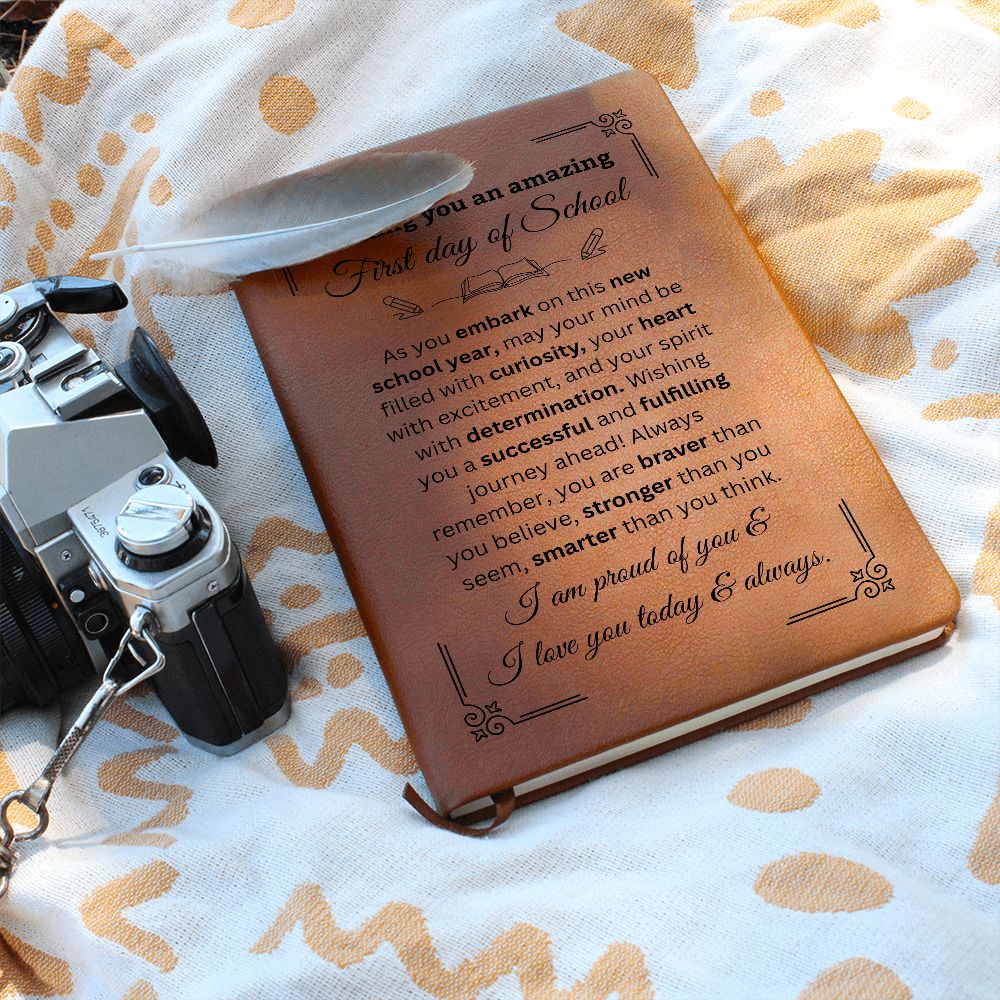 you an amazing
First day of School
As you embark on this new
school year, may your mind be
filled with curiosity, your heart
with excitement, and your spirit
with determination. Wishing
you a successful and fulfilling
journey ahead! Always
remember, you are braver than
you believe, stronger than you
seem, smarter than you think.
I am proud of you &
I love you today & always.
3675471